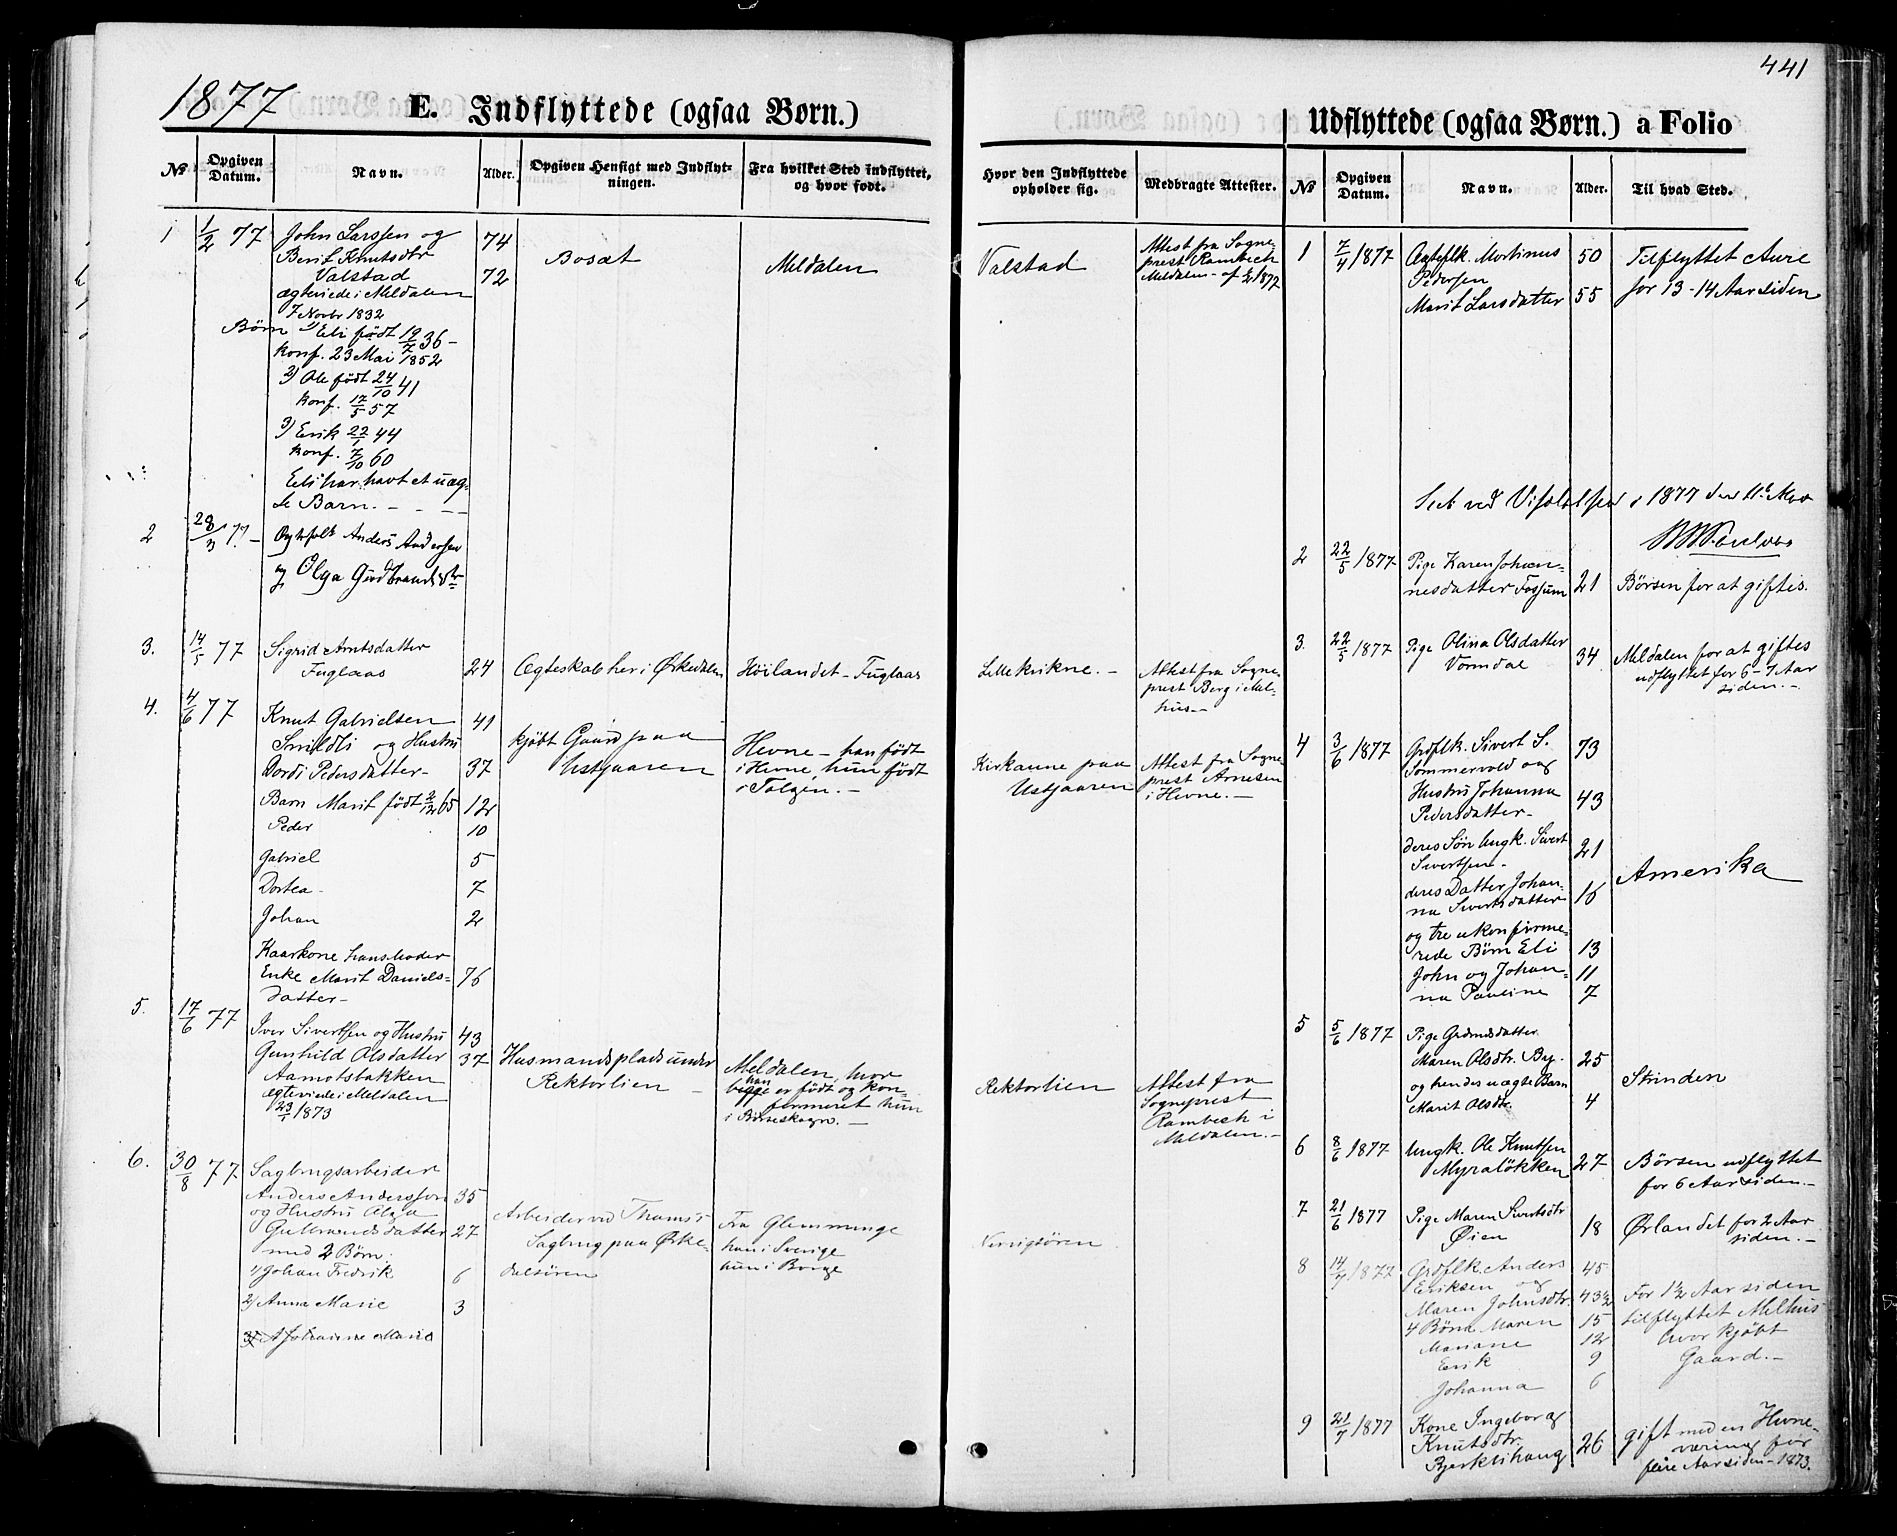 441
1877
E. Indflyttede (ogsaa Børn.)
Udflyttede (ogsaa Børn.) a Folio
№
Opgiven Datum.
Navn.
Alder.
Opgiven Hensigt med Indflyt-
ningen.
Fra hvilket Sted indflyttet,
og hvor født.
Hvor den Indflyttede
opholder sig.
Medbragte Attester.
№
Opgiven Datum.
Navn.
Alder.
Til hvad Sted.
1 1/2 77 John Larssen og 74
Berit Knutsdtr
Valstad 72
ægteviede i Meldalen
7 Novbr 1832
Børn 1) Eli født 19/7 36 -
konf. 23 Mai 1852
2) Ole født 24/10 41
konf. 17/5 57
3) Erik 22/1 44
konf. 7/10 60
Eli har havt et uæg-
te Barn. - - - -
Bosat
Meldalen
Valstad
Attest fra Sogne-
prest Rambech
Meldalen - af 1877
2 28/3 77 - Ægtefolk Anders Andersen
og Olga Gudbrandsdtr
3. 14/5 77 Sigrid Arntsdatter
Fuglaas 24
Ægteskab her i Ørkedalen
Høilandet - Fuglaas
Lillekirkne. -
Attest fra Sogne-
prest Berg i Mel-
hus. -
4. 4/6 77 Knut Gabrielsen 41
Smildli og Hustru
Dordi Pedersdatter - 37
Barn Marit født 2/12 65 12
Peder 10
Gabriel 5
Dortea - 7
Johan 2
Kaarkone hans Moder
Enke Marit Daniels- 76
datter -
kjøbt Gaard paa
Ustjaaren
Hevne - han født
i Hevne, hun født
i Tolgen. -
Kirkaune paa
Ustjaaren
Attest fra Sogne
prest Arnesen
i Hevne. -
5. 17/6 77 Iver Sivertsen og Hustru 43
Gunhild Olsdatter 37
Aamotsbakken
ægteviede i Meldalen
23/1 1873
Husmandsplads under
Rektorlien -
Meldalen, hvor
han
begge er født og kon-
firmeret hun
i Børseskogn. -
Rektorlien
Attest fra
Sogneprest
Rambech i
Meldalen. -
6. 30/8 77 Sagbrugsarbeider
Anders Anderssøn 35
og Hustru Olga
Gulbrandsdatter 27
med 2 Børn.
1) Johan Fredrik 6
2) Anna Marie 3
3) Johanne Marie
Arbeider ved Thams's
Sagbrug paa Ørke-
dalsøren
Fra Glemminge
han i Sverige
hun i Borge
Nervigsøren
1 7/4 1877 Ægteflk Mortinus 50
Pedersen
Marit Larsdatter 55
Tilflyttet Aure
for 13 - 14 Aar siden
Seet ved Visitatsen i 1877 den
2 22/5 1877 - Pige Karen Johan-
nesdatter Fossum 21 Børsen for at giftes.
3. 22/5 1877 Pige Olina Olsdatter
Vormdal 34 Meldalen for at giftes
udflyttet for 6 - 7 Aar
siden. -
4 3/6 1877 Grdflk. Sivert S. 73
Sommervold og
Hustru Johanna 43
Pedersdatter -
deres Søn Ungk. Sivert 21
Sivertsen -
deres Datter Johan-
na Sivertsdatter 16
og tre ukonfirme-
rede Børn Eli 13
John og Johan- 11
na Pauline 7
Amerika
5 5/6 1877 Pige Grdmdsdatter
Maren Olsdtr. By 25
og hendes uægte Barn
Marit Olsdtr. 4
Strinden
6 8/6 1877 Ungk. Ole Knutsen
Myraløkken 27 Børsen udflyttet
for 6 Aar siden. -
7 21/6 1877 Pige Maren Sivertsdtr
Øien 18 Ørlandet for 2 Aar
siden. -
8 14/7 1877 Grdflk. Anders 45
Eriksen og
Maren Johnsdtr. 43 1/2
4 Børn Maren 15
Mariane 12
Erik 9
Johanna 6
For 1 1/2 Aar siden
tilflyttet Melhus
hvor kjøbt
Gaard. -
9 21/7 1877 Kone Ingeborg
Knutsdtr.
Bjerklihaug 26
gift med en Hevne-
væring for
flere Aar siden - 1873.